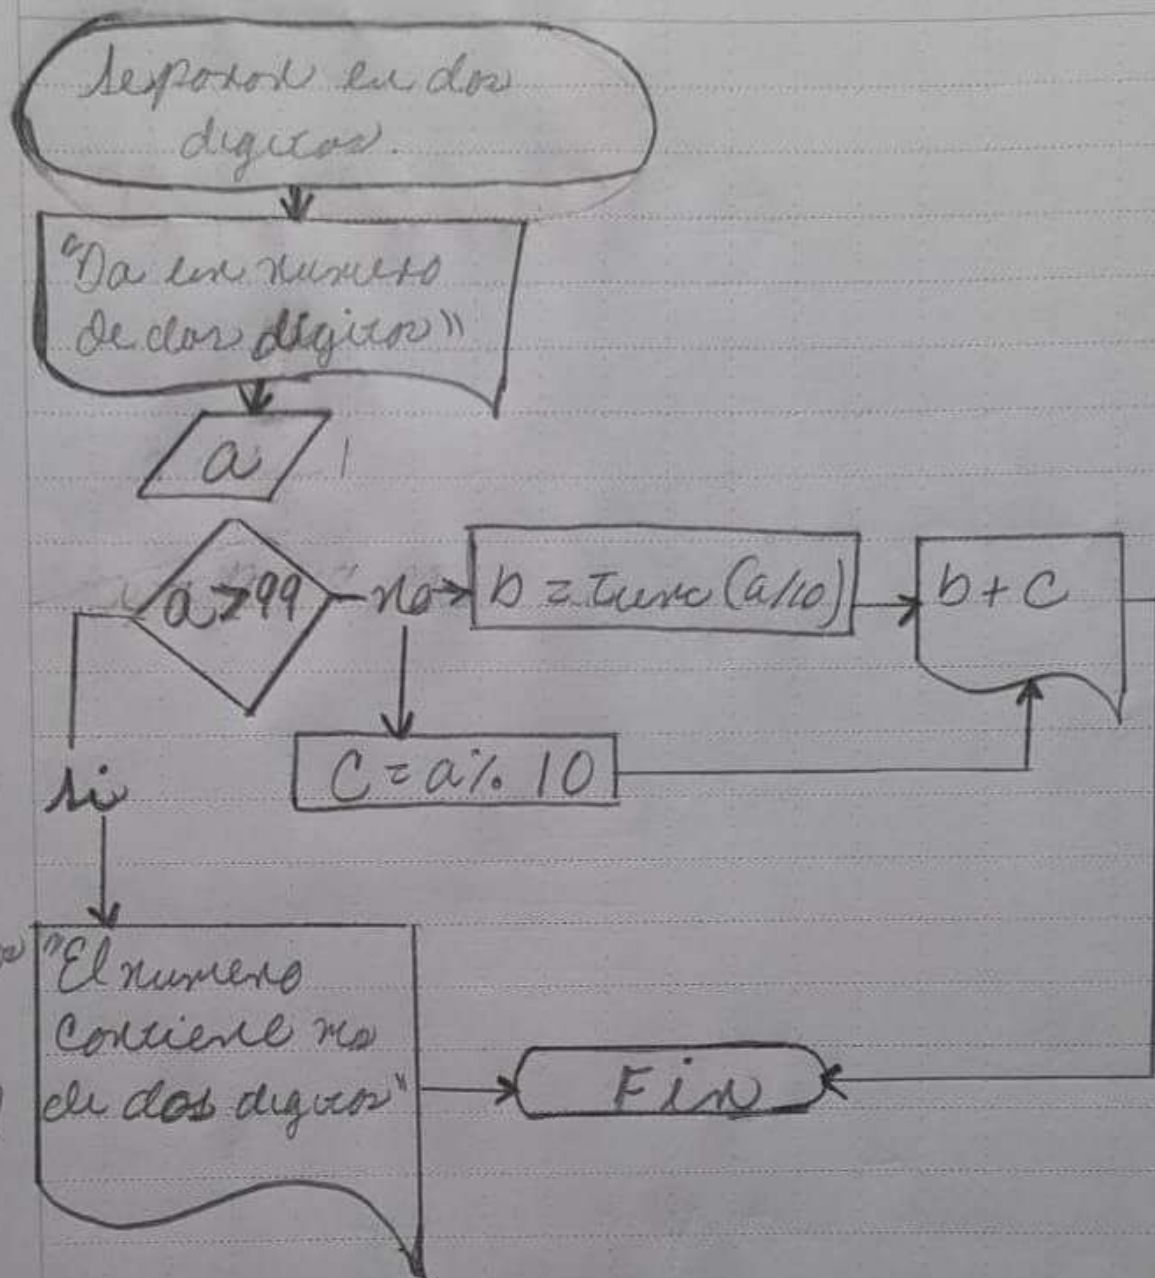 Separar en dos
digitos.
"Da un numero
de dos digitos"
a
a>99
no
b = Trunc(a/10)
b + c
C = a % 10
si
"El numero
contiene mas
de dos digitos"
Fin